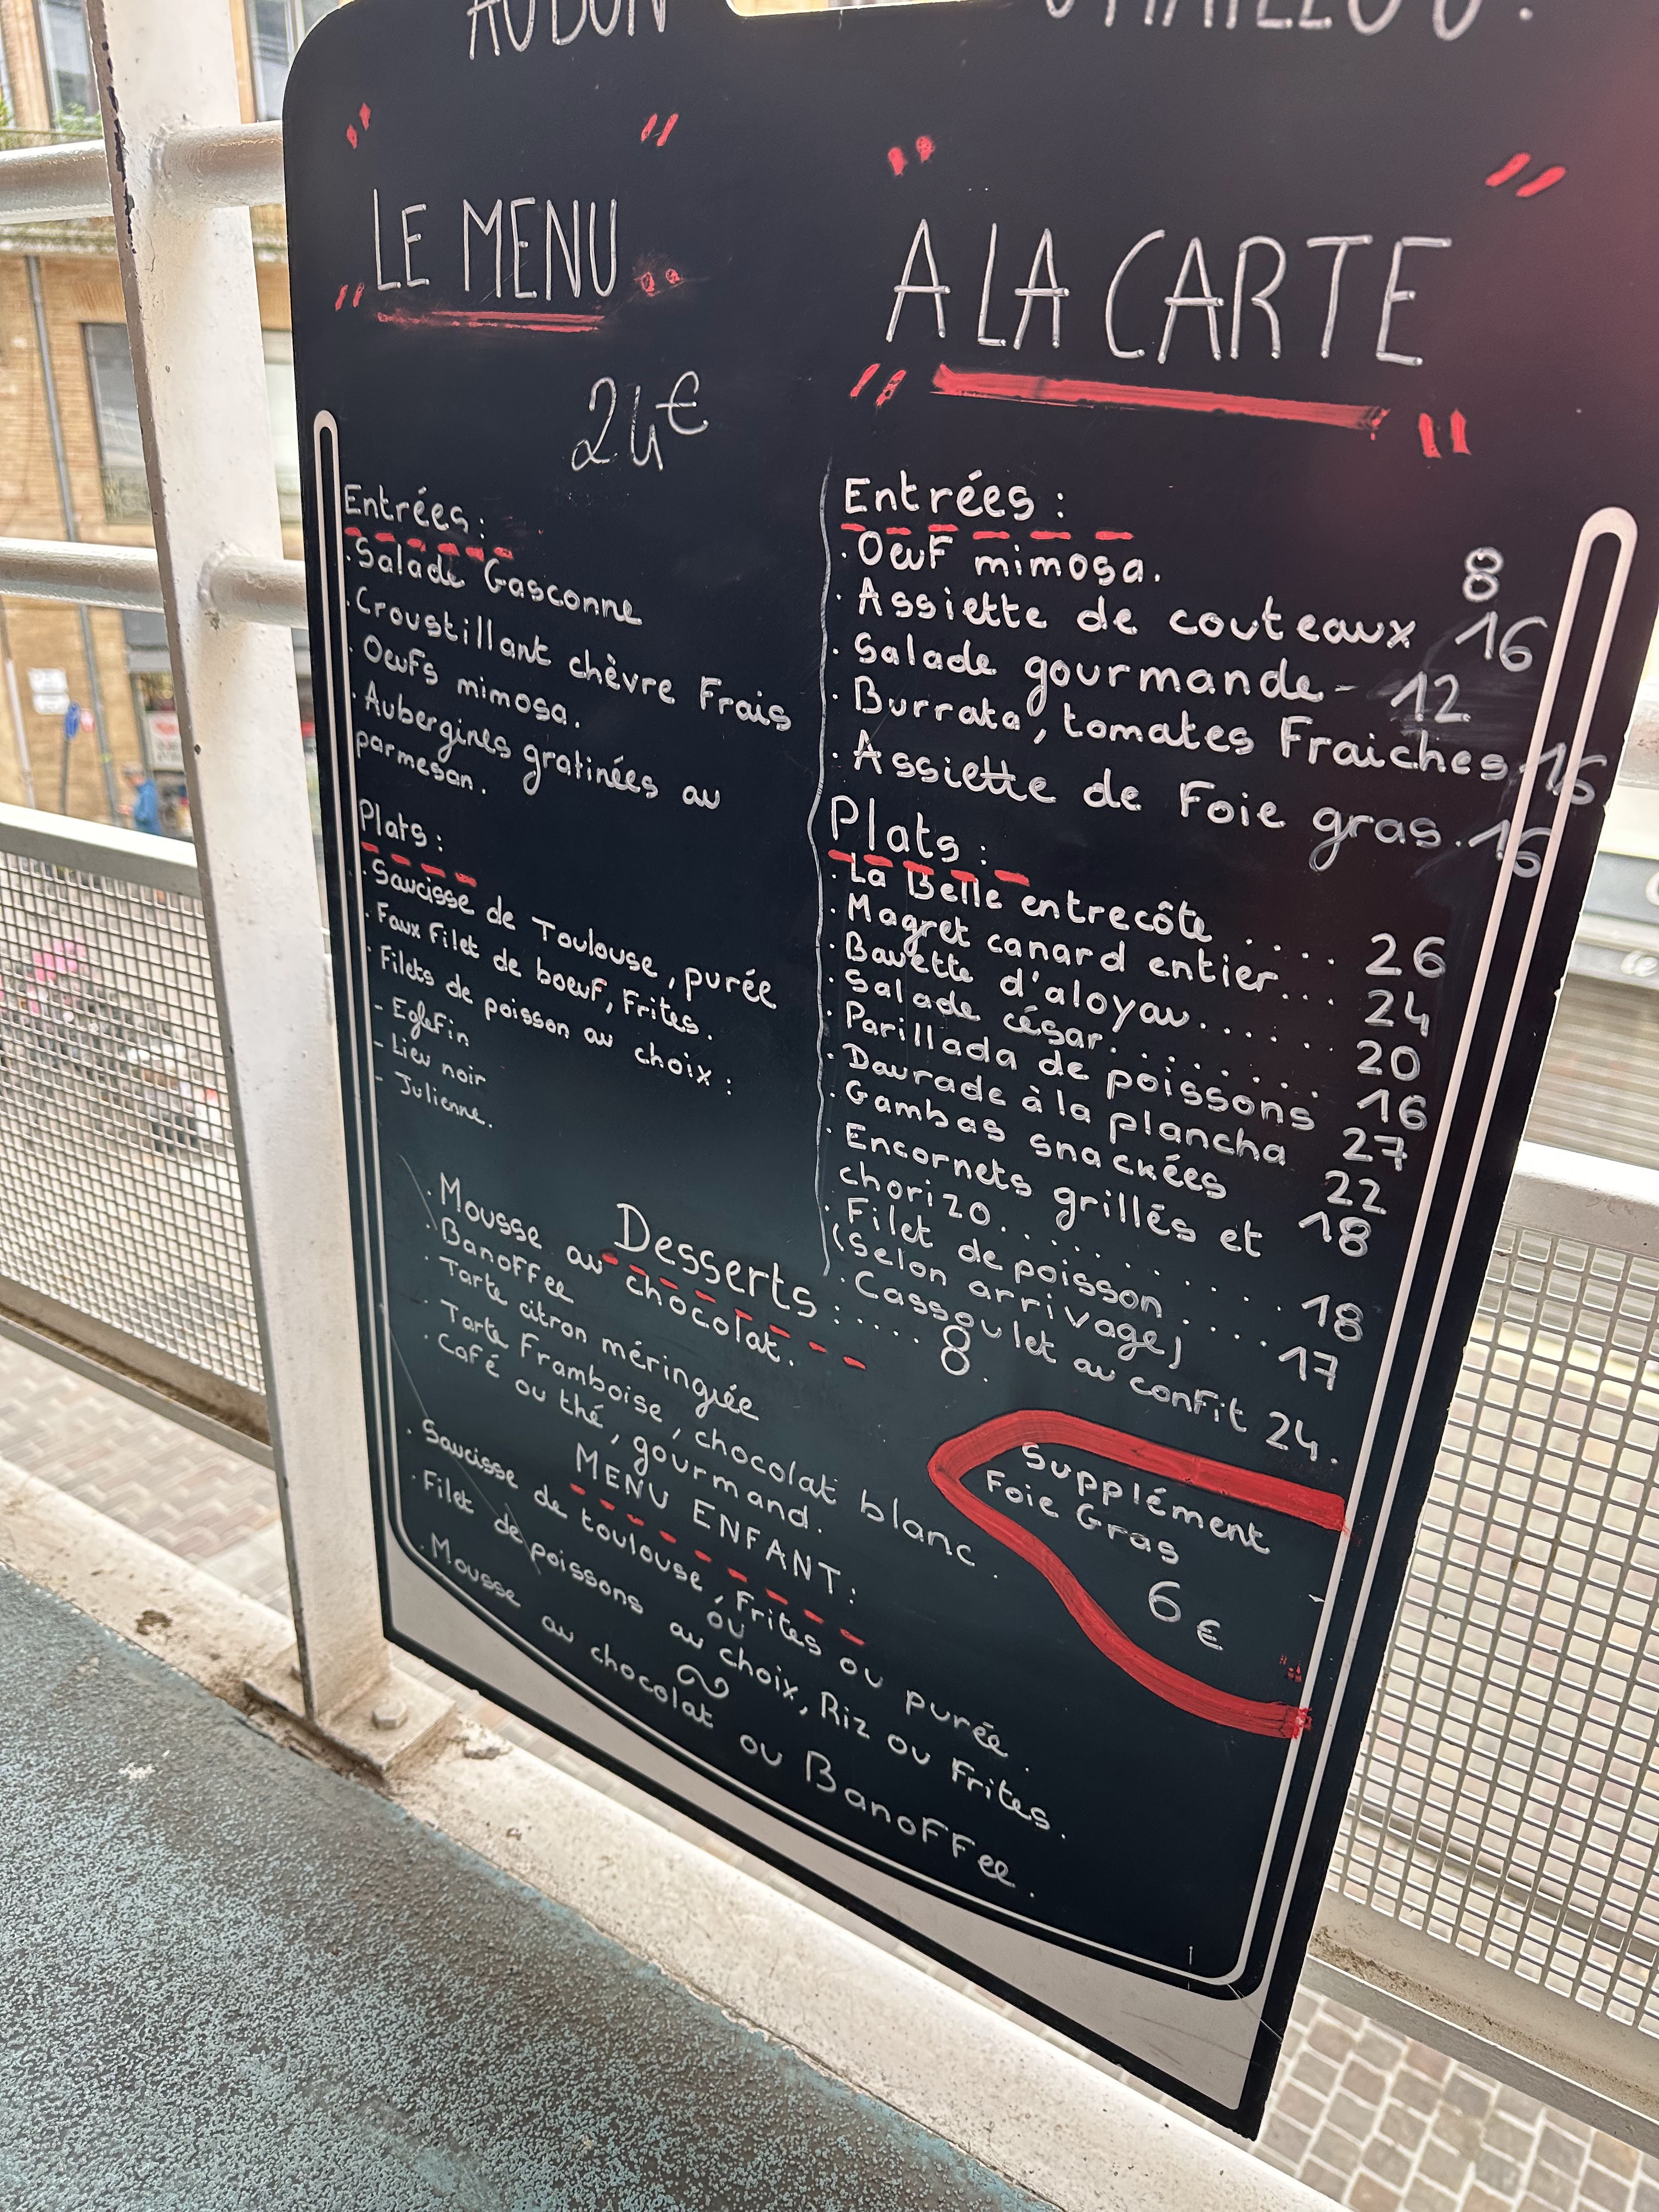 AU BON
LE MENU
24€
Entrées:
. Salade Gasconne
. Croustillant chèvre Frais
. OeuFs mimosa.
. Aubergines gratinées au
parmesan.
Plats:
. Saucisse de Toulouse, purée
. Faux Filet de boeuF, Frites.
. Filets de poisson au choix :
- EgleFin
- Lieu noir
- Julienne.
A LA CARTE
Entrées :
. OeuF mimosa. 8
. Assiette de couteaux 16
. Salade gourmande - 12
. Burrata, tomates Fraiches 16
. Assiette de Foie gras. 16
Plats :
. La Belle entrecôte .... 26
. Magret canard entier... 24
. Bavette d'aloyau...... 20
. Salade césar......... 16
. Parillada de poissons 27
. Daurade à la plancha 22
. Gambas snackées 18
. Encornets grillés et
chorizo......... 18
. Filet de poisson .... 17
(Selon arrivage)
. Cassoulet au confit 24.
Desserts: .... 8.
. Mousse au chocolat.
. BanoFFee
. Tarte citron méringuée
. Tarte Framboise, chocolat blanc.
. CaFé ou thé, gourmand.
MENU ENFANT:
. Saucisse de toulouse, Frites ou purée.
ou
. Filet de poissons au choix, Riz ou Frites.
. Mousse au chocolat ou BanoFFee.
Supplément
Foie Gras
6€